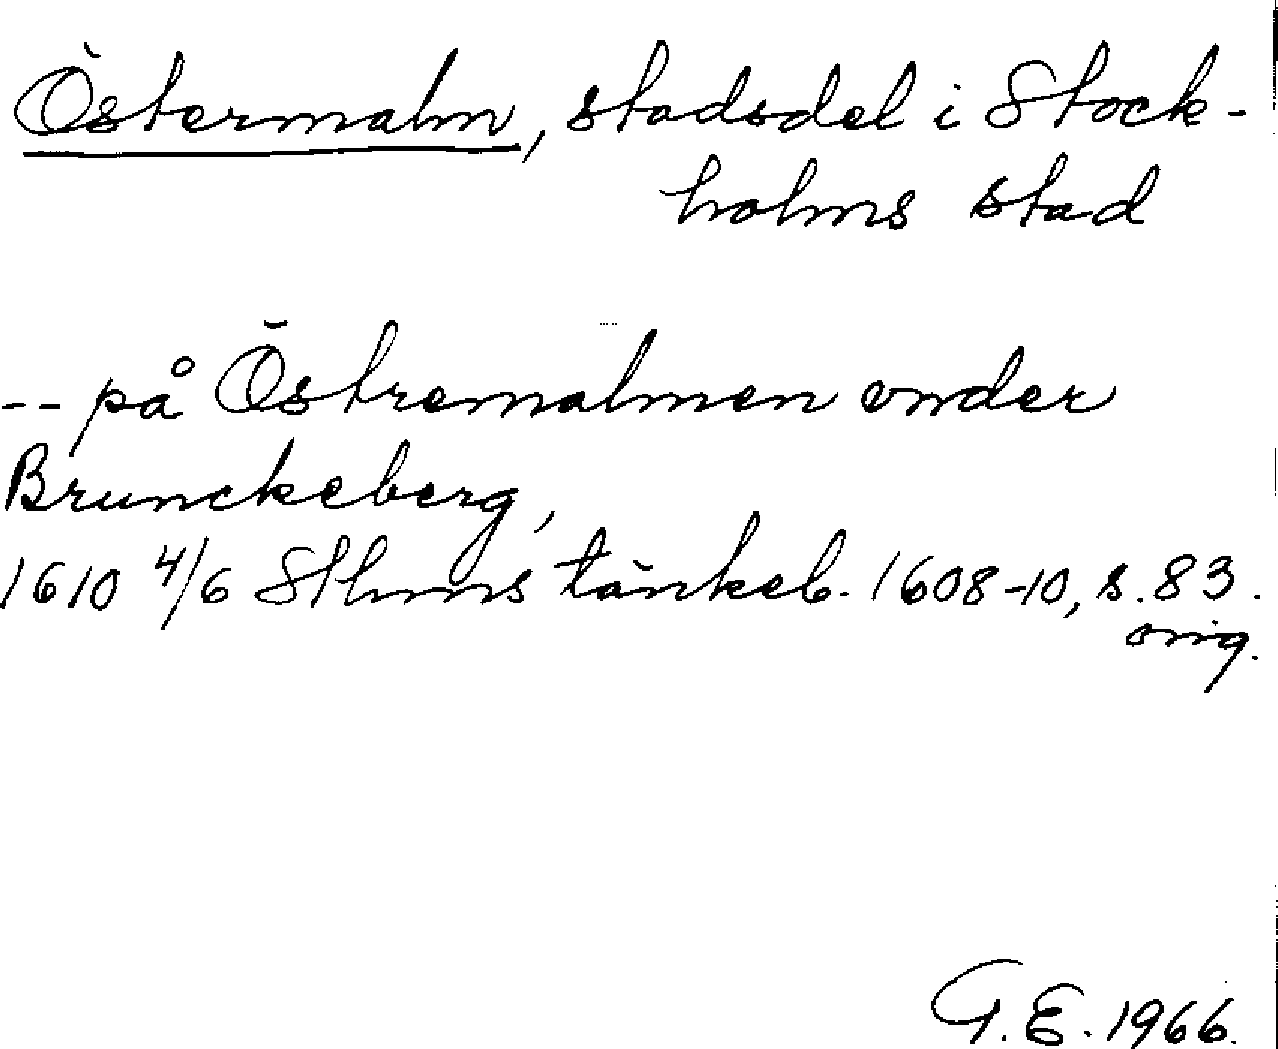 Östermalm, stadsdel i Stock-
holms stad
-- på Östremalmen under
Brunckeberg,
1610 4/6 Sthms tänkeb. 1608-10, s. 83.
orig.
G.E. 1966.